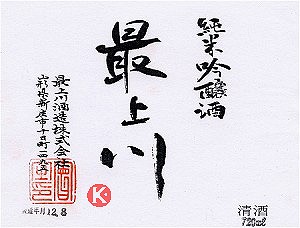 純米吟醸酒
最上川
最上川酒造株式会社
山形県新庄市十日町一四五三
12.8
清酒
720ml
K